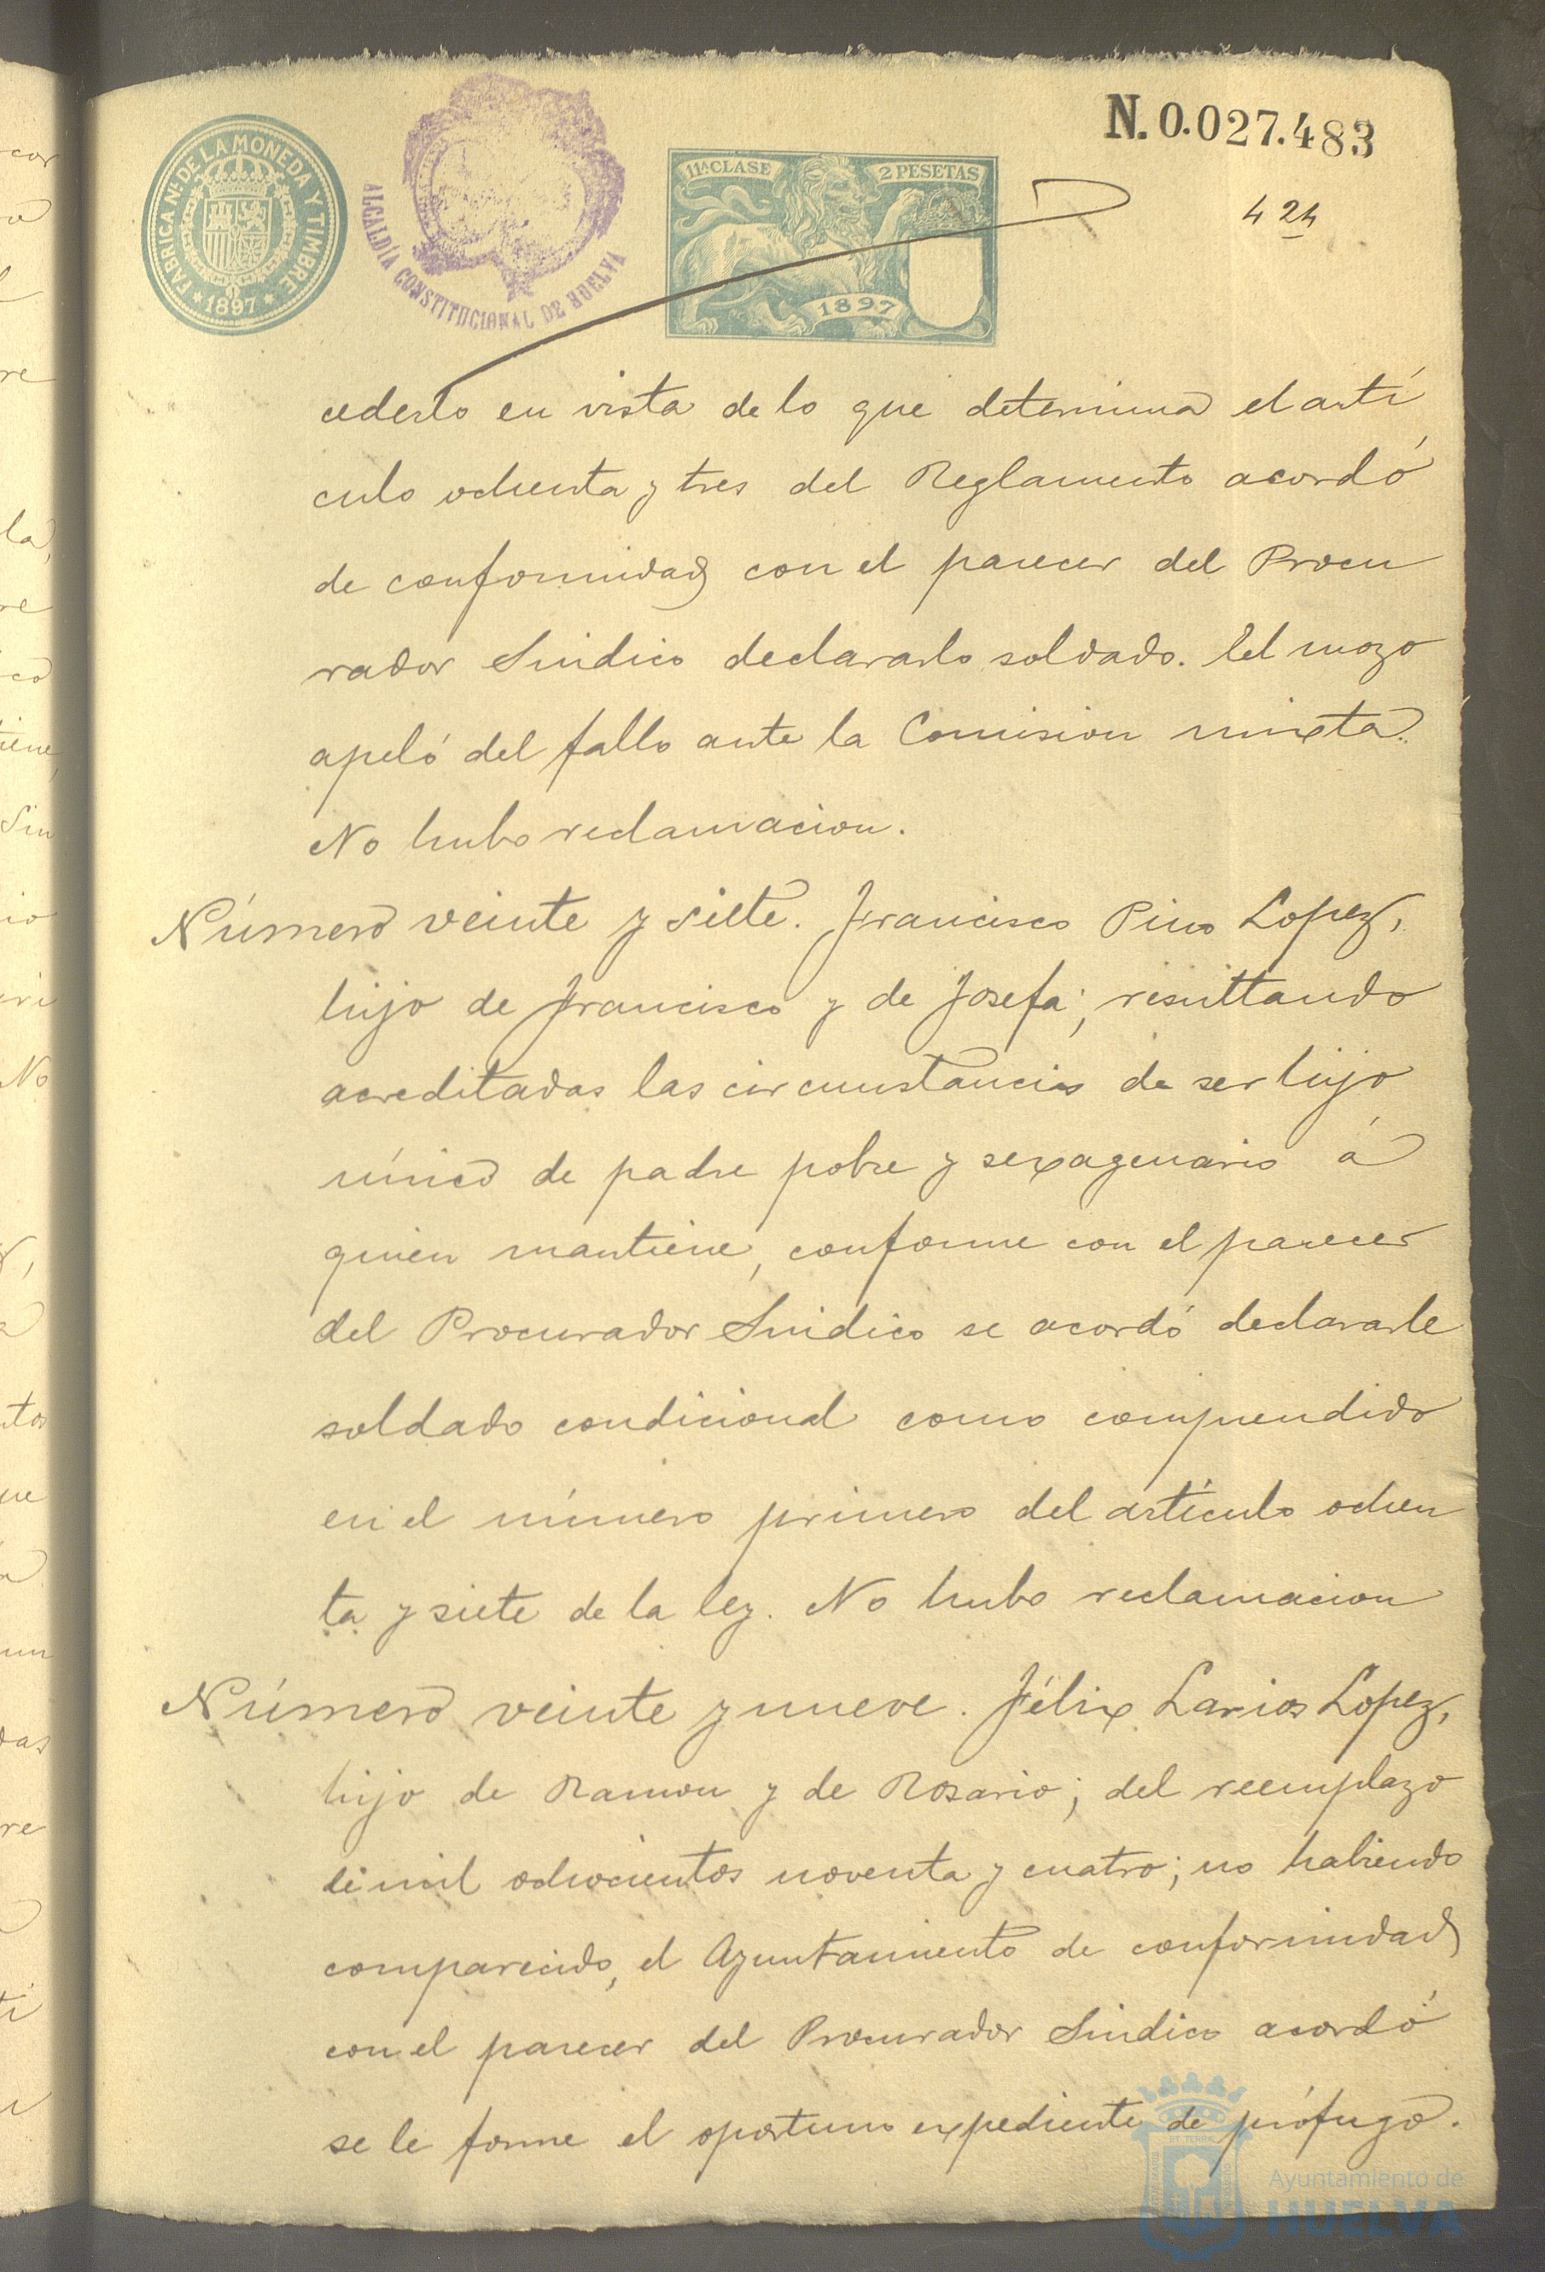 N. 0.027.483
FABRICA Nal DE LA MONEDA Y TIMBRE
* 1897 *
ALCALDÍA CONSTITUCIONAL DE HUELVA
11ª CLASE 2 PESETAS
1897
424
cederlo en vista de lo que determina el artí
culo ochenta y tres del Reglamento acordó
de conformidad con el parecer del Procu
rador Sindico declararlo soldado. El mozo
apeló del fallo ante la Comision mixta.
No hubo reclamacion.
Número veinte y siete. Francisco Pino Lopez,
hijo de Francisco y de Josefa; resultando
acreditadas las circunstancias de ser hijo
único de padre pobre y sexagenario á
quien mantiene, conforme con el parecer
del Procurador Sindico se acordó declararle
soldado condicional como comprendido
en el número primero del artículo ochen
ta y siete de la ley. No hubo reclamacion
Número veinte y nueve. Félix Larios Lopez,
hijo de Ramon y de Rosario; del reemplazo
de mil ochocientos noventa y cuatro; no habiendo
comparecido, el Ayuntamiento de conformidad
con el parecer del Procurador Sindico acordó
se le forme el oportuno expediente de prófugo.
Ayuntamiento de
HUELVA